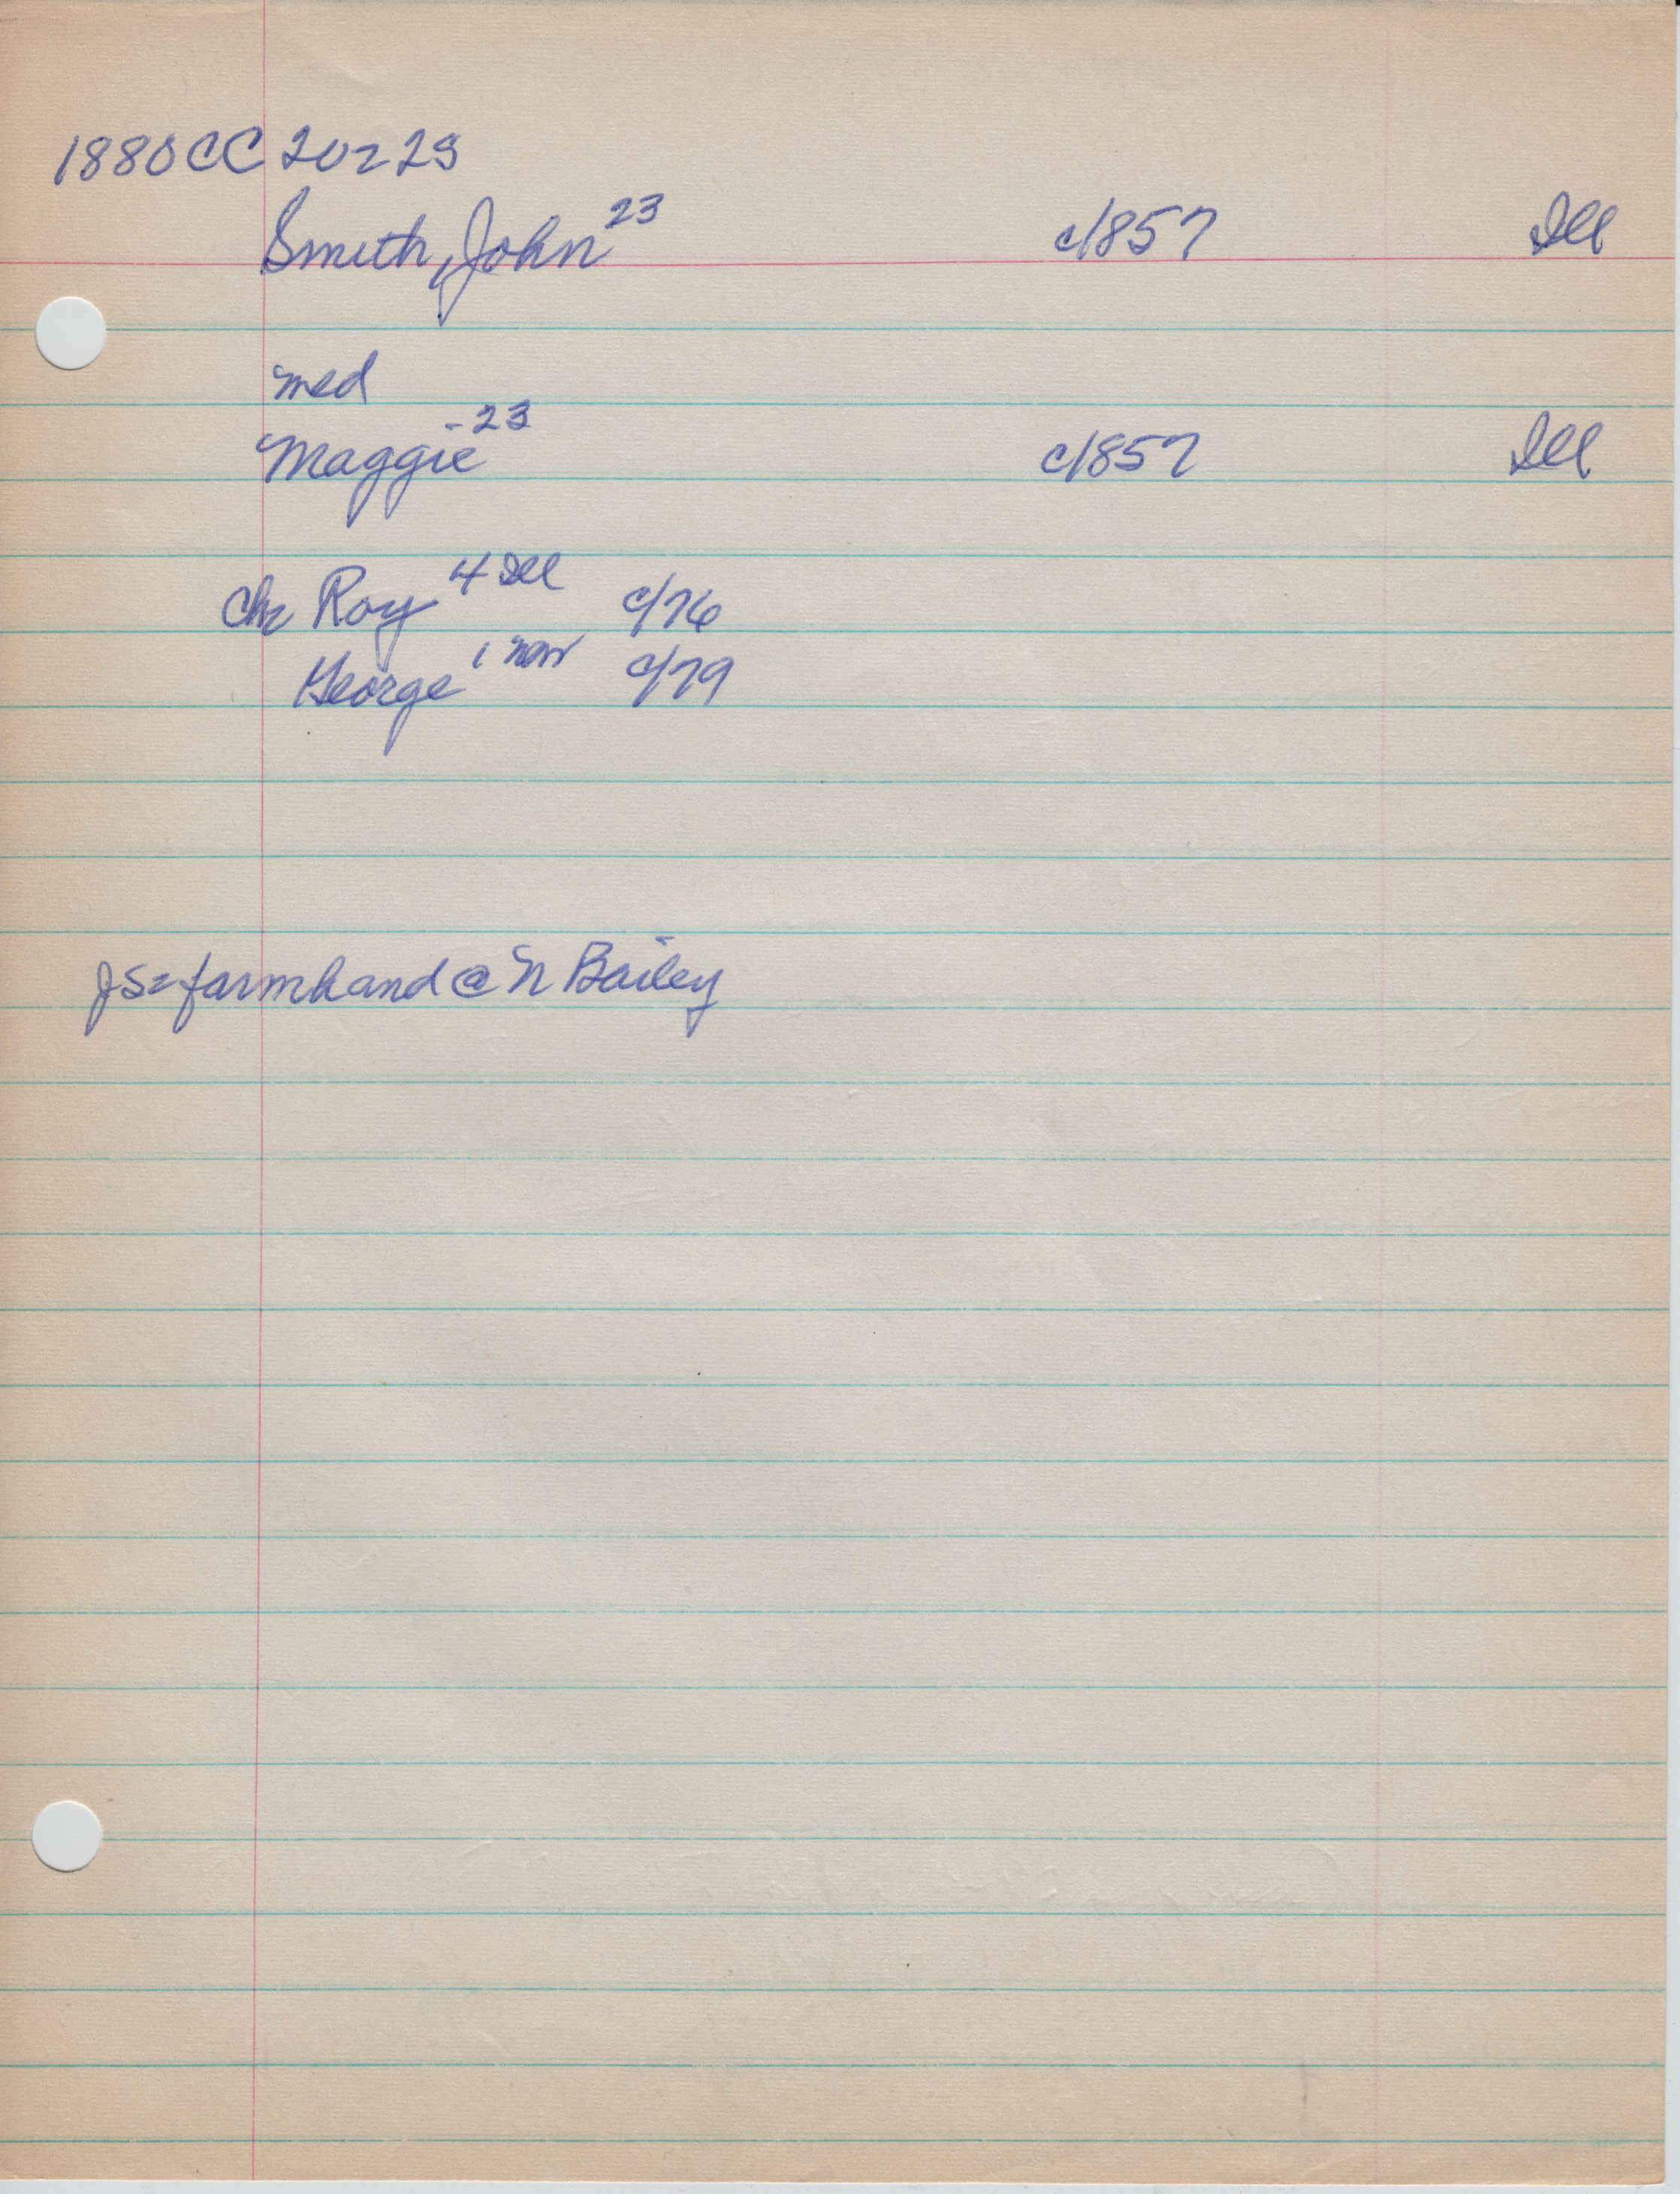 1880 CC 20=29
Smith, John 23 c1857 Ill
med
Maggie -23 c1857 Ill
Ch= Roy 4 Ill c/76
George 1 c/79
JS= farmhand @ N Bailey